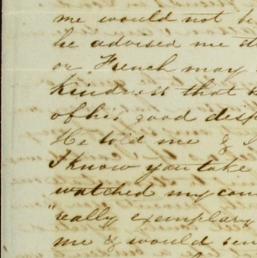 me would not be
he advised me th
or French may
kindness that
of his good disp
He told me & 
I know you take
watched my con
"really exemplary
me & would sen